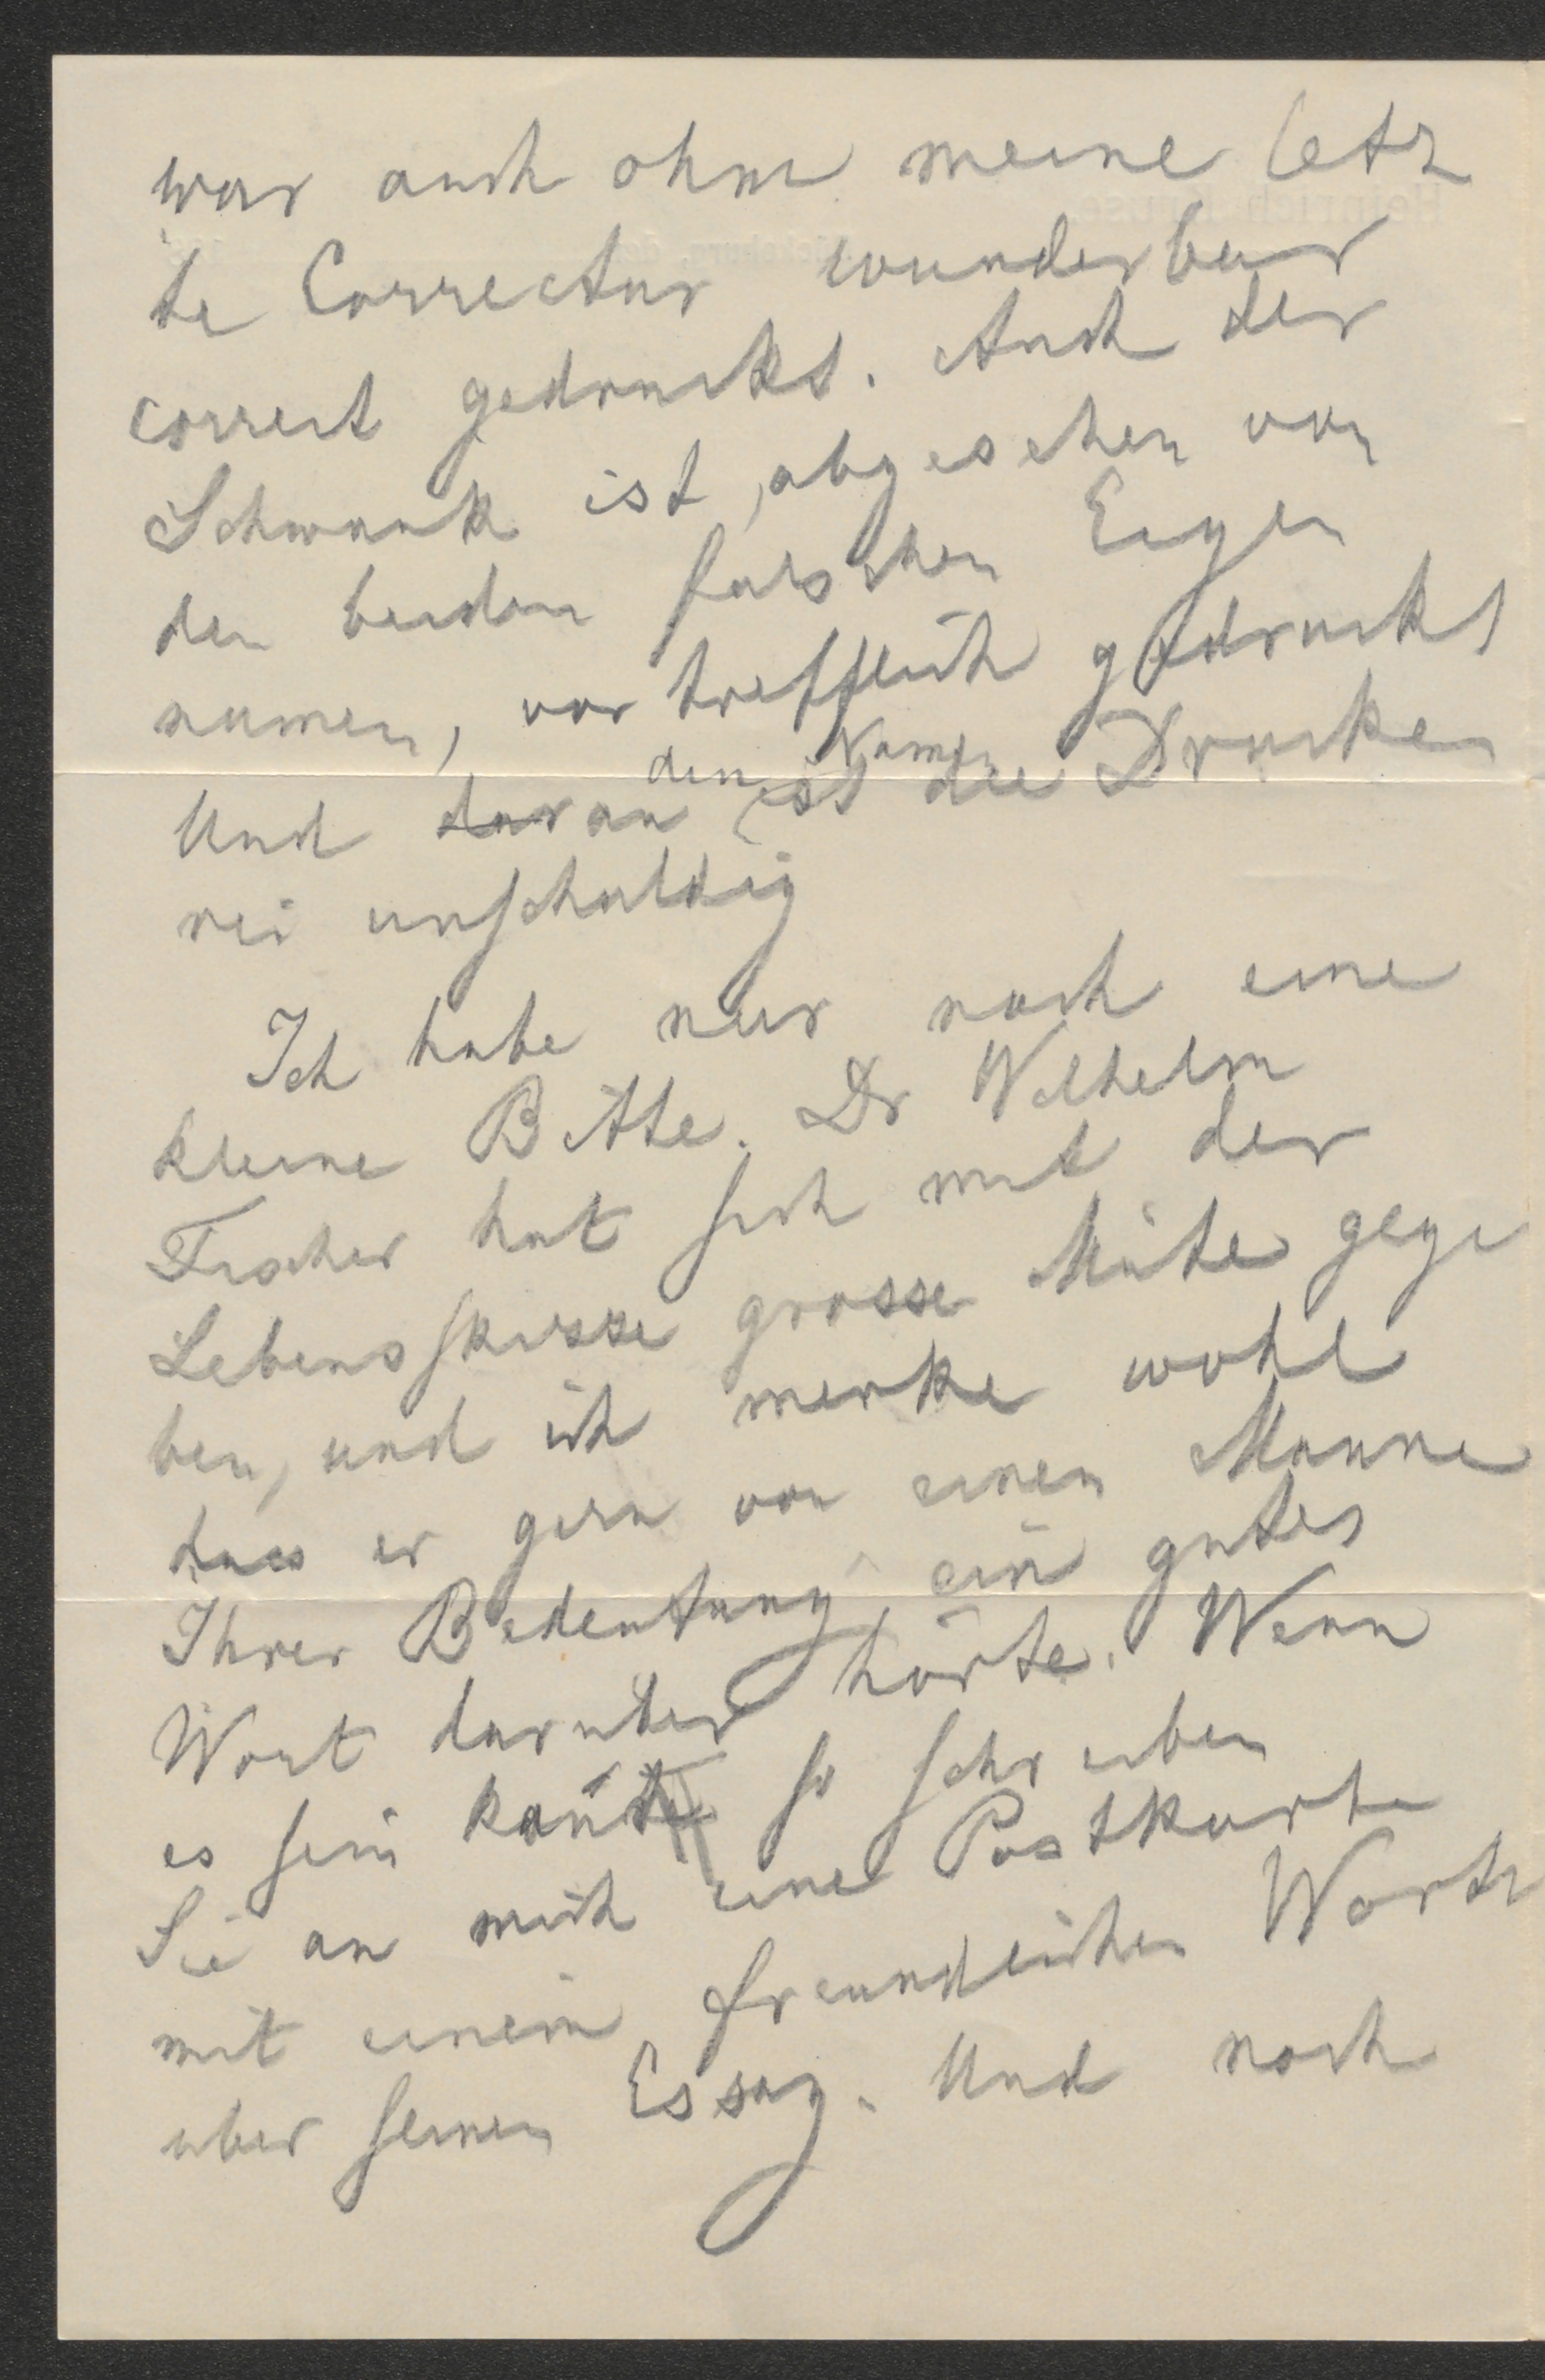 war auch ohne meine letz
te Correctur wunderbar
correct gedruckt. Auch der
Schwank ist, abgesehen von
den beiden falschen Eigen
namen, vortrefflich gedruckt
den Namen
Und daran ist die Drucke
rei unschuldig
Ich habe nur noch eine
kleine Bitte. Dr Wilhelm
Fischer hat sich mit der
Lebensskizze grosse Mühe gege
ben, und ich merke wohl
dass er gern von einem Manne
Ihrer Bedeutung ein gutes
Wort darüber hörte. Wenn
es sein so schreiben
Sie an mich eine Postkarte
mit einem freundlichen Worte
uber seinen Essay. Und noch